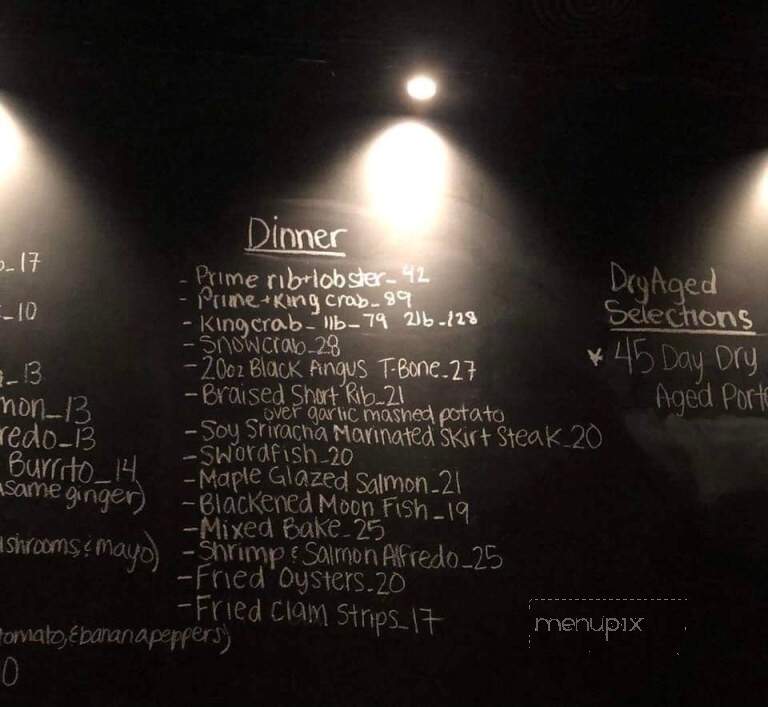 -17
-10
-13
mon-13
redo-13
Burrito-14
same ginger)
shrooms, & mayo)
tomato, & banana peppers)
0
Dinner
- Prime rib + lobster - 42
- Prime + King crab - 89
- King crab - 1lb - 79 2lb - 128
- Snowcrab - 28
- 20oz Black Angus T-Bone - 27
- Braised Short Rib - 21
over garlic mashed potato
- Soy Sriracha Marinated Skirt Steak - 20
- Swordfish - 20
- Maple Glazed Salmon - 21
- Blackened Moon Fish - 19
- Mixed Bake - 25
- Shrimp & Salmon Alfredo - 25
- Fried Oysters - 20
- Fried Clam Strips - 17
Dry Aged
Selections
* 45 Day Dry
Aged Porte
menupix